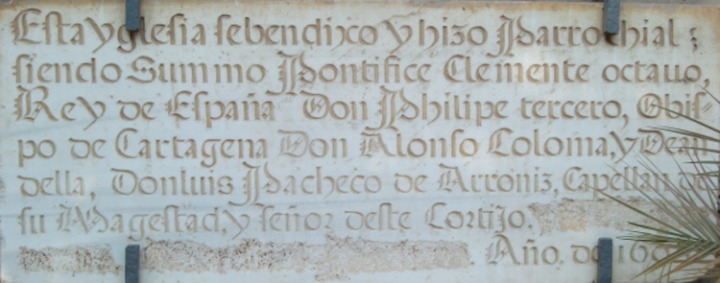 Esta yglesia se bendixo y hizo Parrochial ;
siendo Summo Pontifice Clemente octauo,
Rey de España Don Philipe tercero, Obis-
po de Cartagena Don Alonso Coloma, y Dean
della, Don luis Pacheco de Arroniz, Capellan de
su Magestad, y señor deste Cortijo.
. Año. de